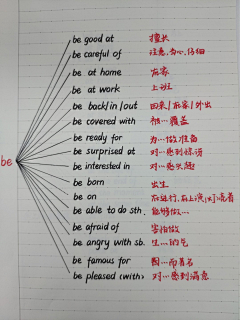 be good at 擅长
be careful of 注意,当心,仔细
be at home 在家
be at work 上班
be back/in/out 回来/在家/外出
be covered with 被…覆盖
be ready for 为…做准备
be surprised at 对…感到惊讶
be interested in 对…感兴趣
be
be born 出生
be on 在进行,在上演,(灯)亮着
be able to do sth. 能够做…
be afraid of 害怕做
be angry with sb. 生…的气
be famous for 因…而著名
be pleased (with) 对…感到满意